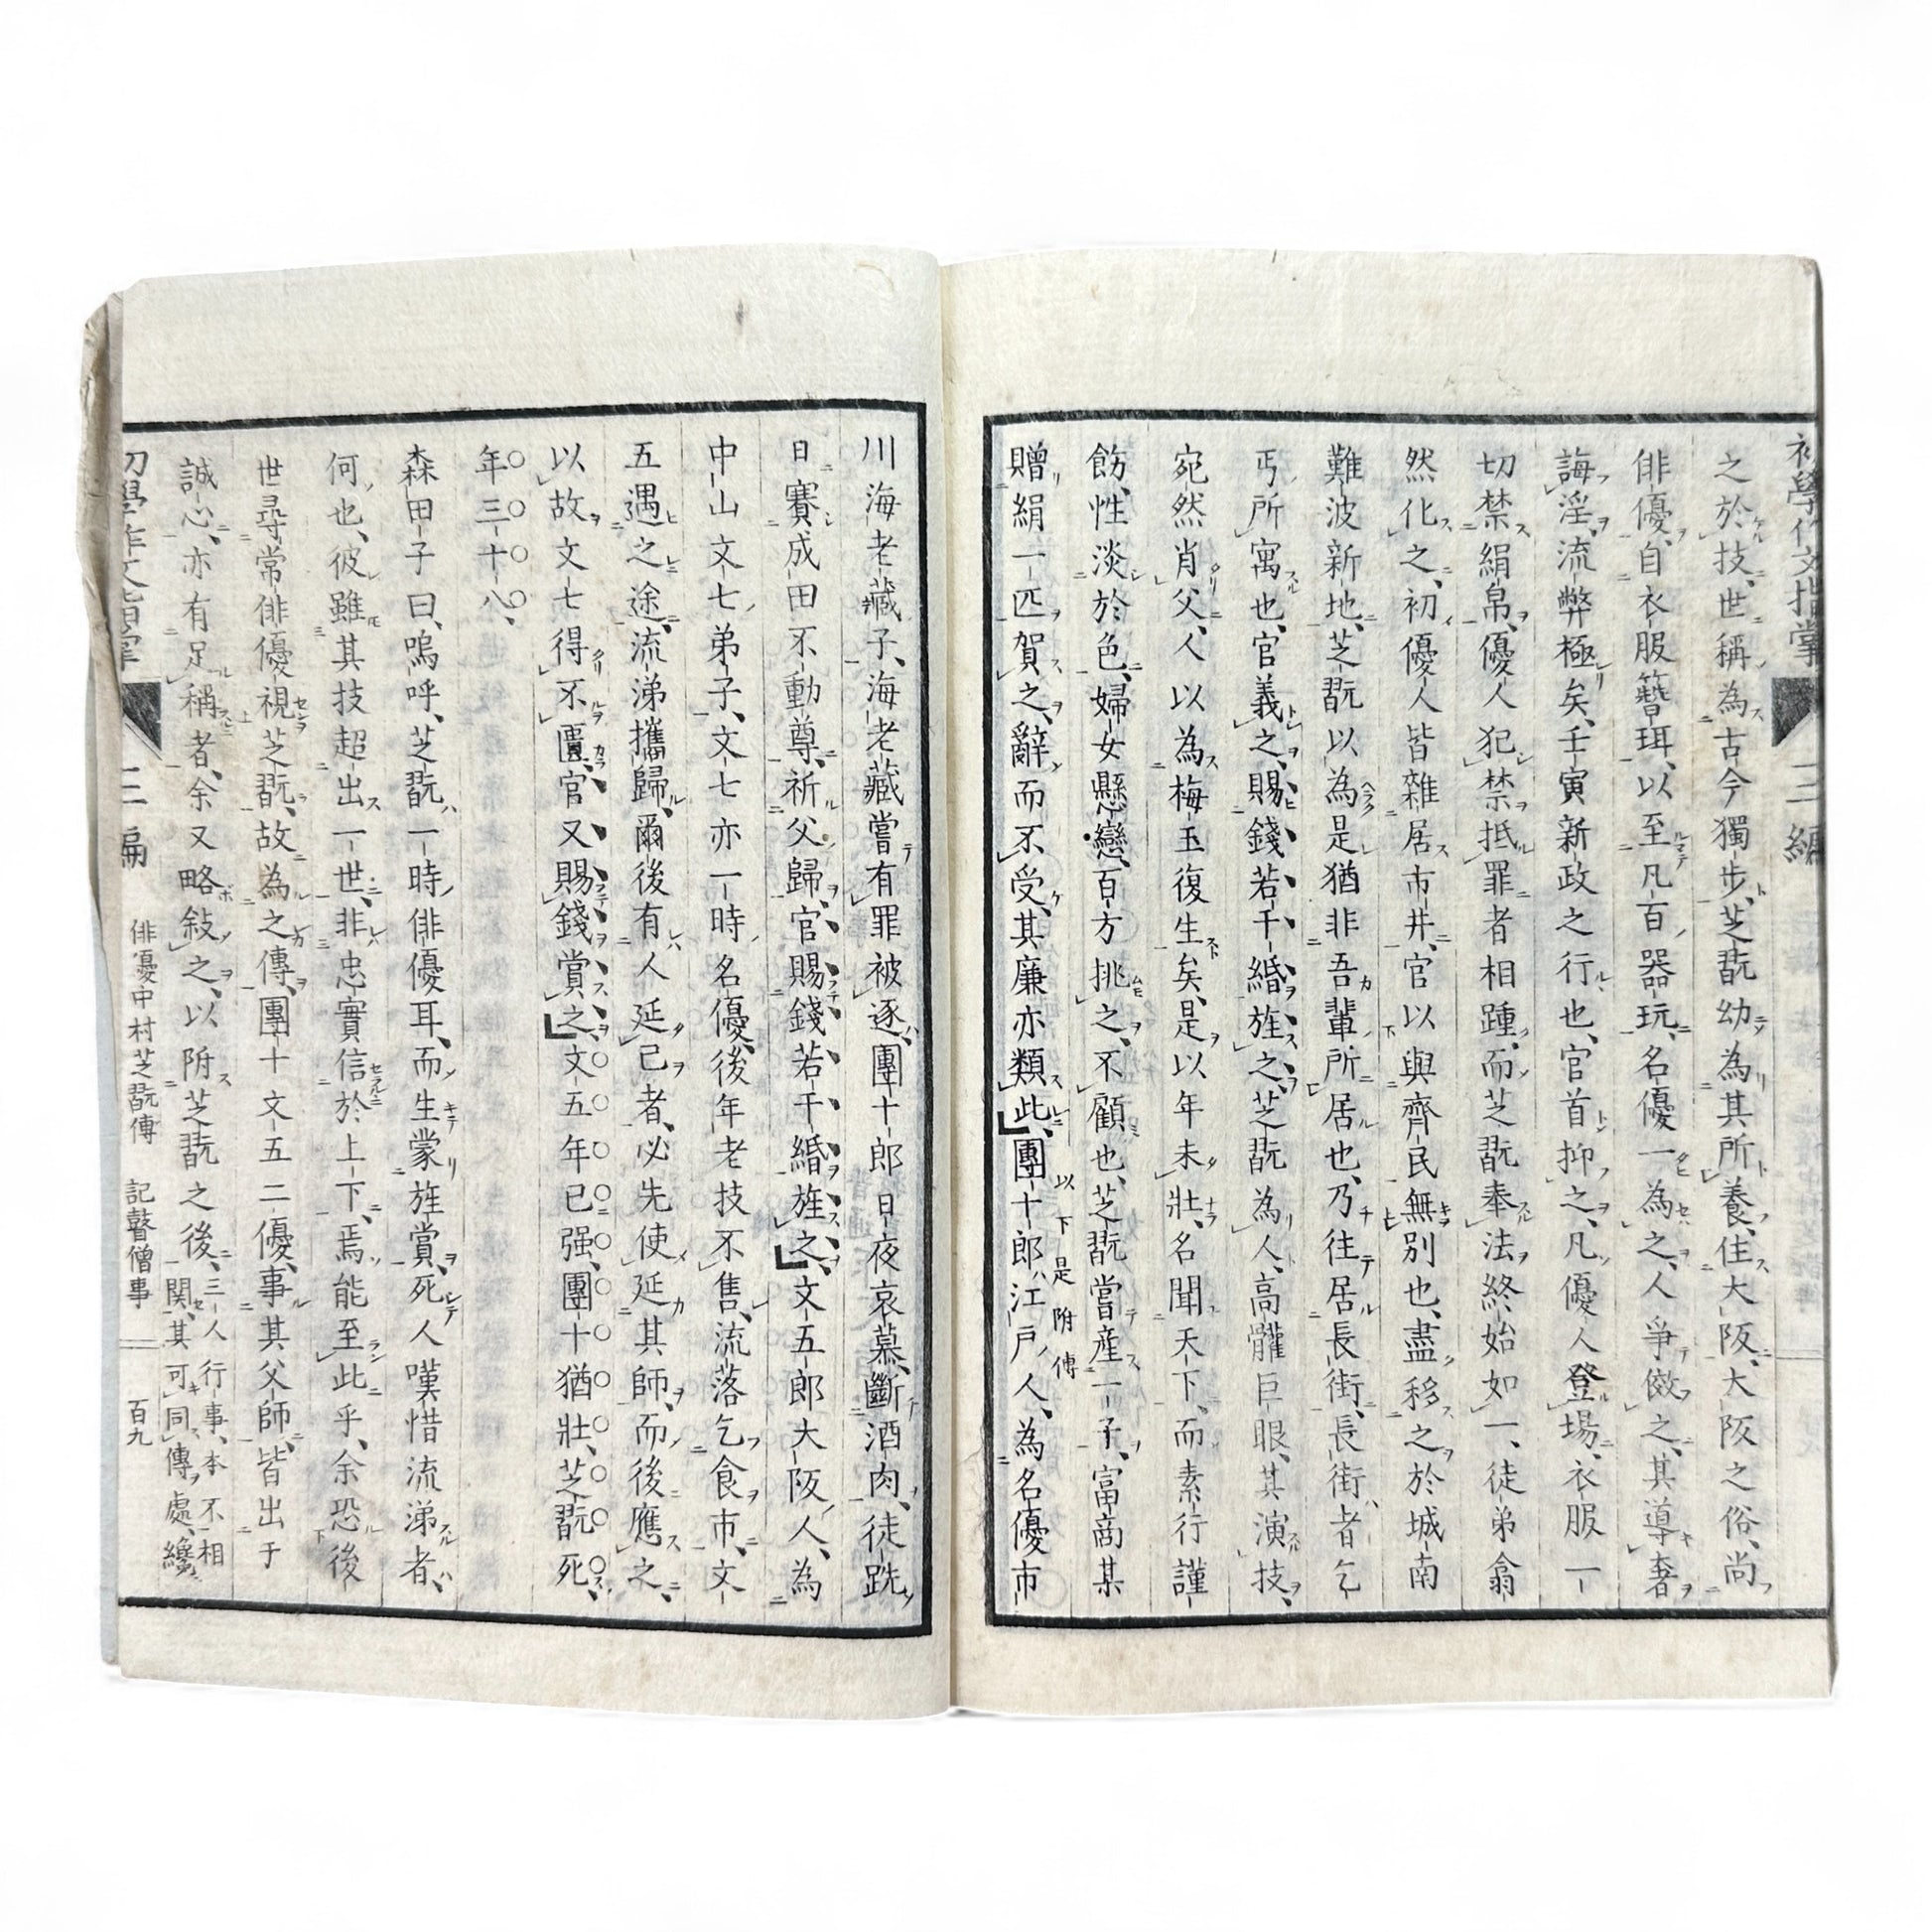 初學作文指掌 三編
之於技、世稱為古今獨步、芝翫幼為其所養、住大阪、大阪之俗、尚
俳優、自衣服簪珥、以至凡百器玩、名優一為之、人爭傚之、其導奢
誨淫、流弊極矣、壬寅新政之行也、官首抑之、凡優人登場、衣服一
切禁絹帛、優人犯禁抵罪者相踵、而芝翫奉法終始如一、徒弟翕
然化之、初優人皆雜居市井、官以與齊民無別也、盡移之於城南
難波新地、芝翫以為是猶非吾輩所居也、乃往居長街、長街者乞
丐所寓也、官義之、賜錢若干緡旌之、芝翫為人、高髗巨眼、其演技、
宛然肖父、人以為梅玉復生矣、是以年未壯、名聞天下、而素行謹
飭、性淡於色、婦女懸戀、百方挑之、不顧也、芝翫嘗産一子、富商某
贈絹一匹賀之、辭而不受、其廉亦類此、團十郎、江戸人、為名優市
以下是附傳
川海老藏子、海老藏嘗有罪被逐、團十郎日夜哀慕、斷酒肉、徒跣
日賽成田不動尊、祈父歸、官賜錢若干緡旌之、文五郎大阪人、為
中山文七弟子、文七亦一時名優、後年老技不售、流落乞食市、文
五遇之途、流涕攜歸、爾後有人延己者、必先使延其師、而後應之、
以故文七得不匱、官又賜錢賞之、文五年已强、團十猶壯、芝翫死、
年三十八、
森田子曰、嗚呼、芝翫一時俳優耳、而生蒙旌賞、死人嘆惜流涕者、
何也、彼雖其技超出一世、非忠實信於上下、焉能至此乎、余恐後
世尋常俳優視芝翫、故為之傳、團十文五二優、事其父師、皆出于
誠心、亦有足稱者、余又略敍之、以附芝翫之後、三人行事、本不相
関、其可同傳處、纔
初學作文指掌 三編 俳優中村芝翫傳 記瞽僧事 百九